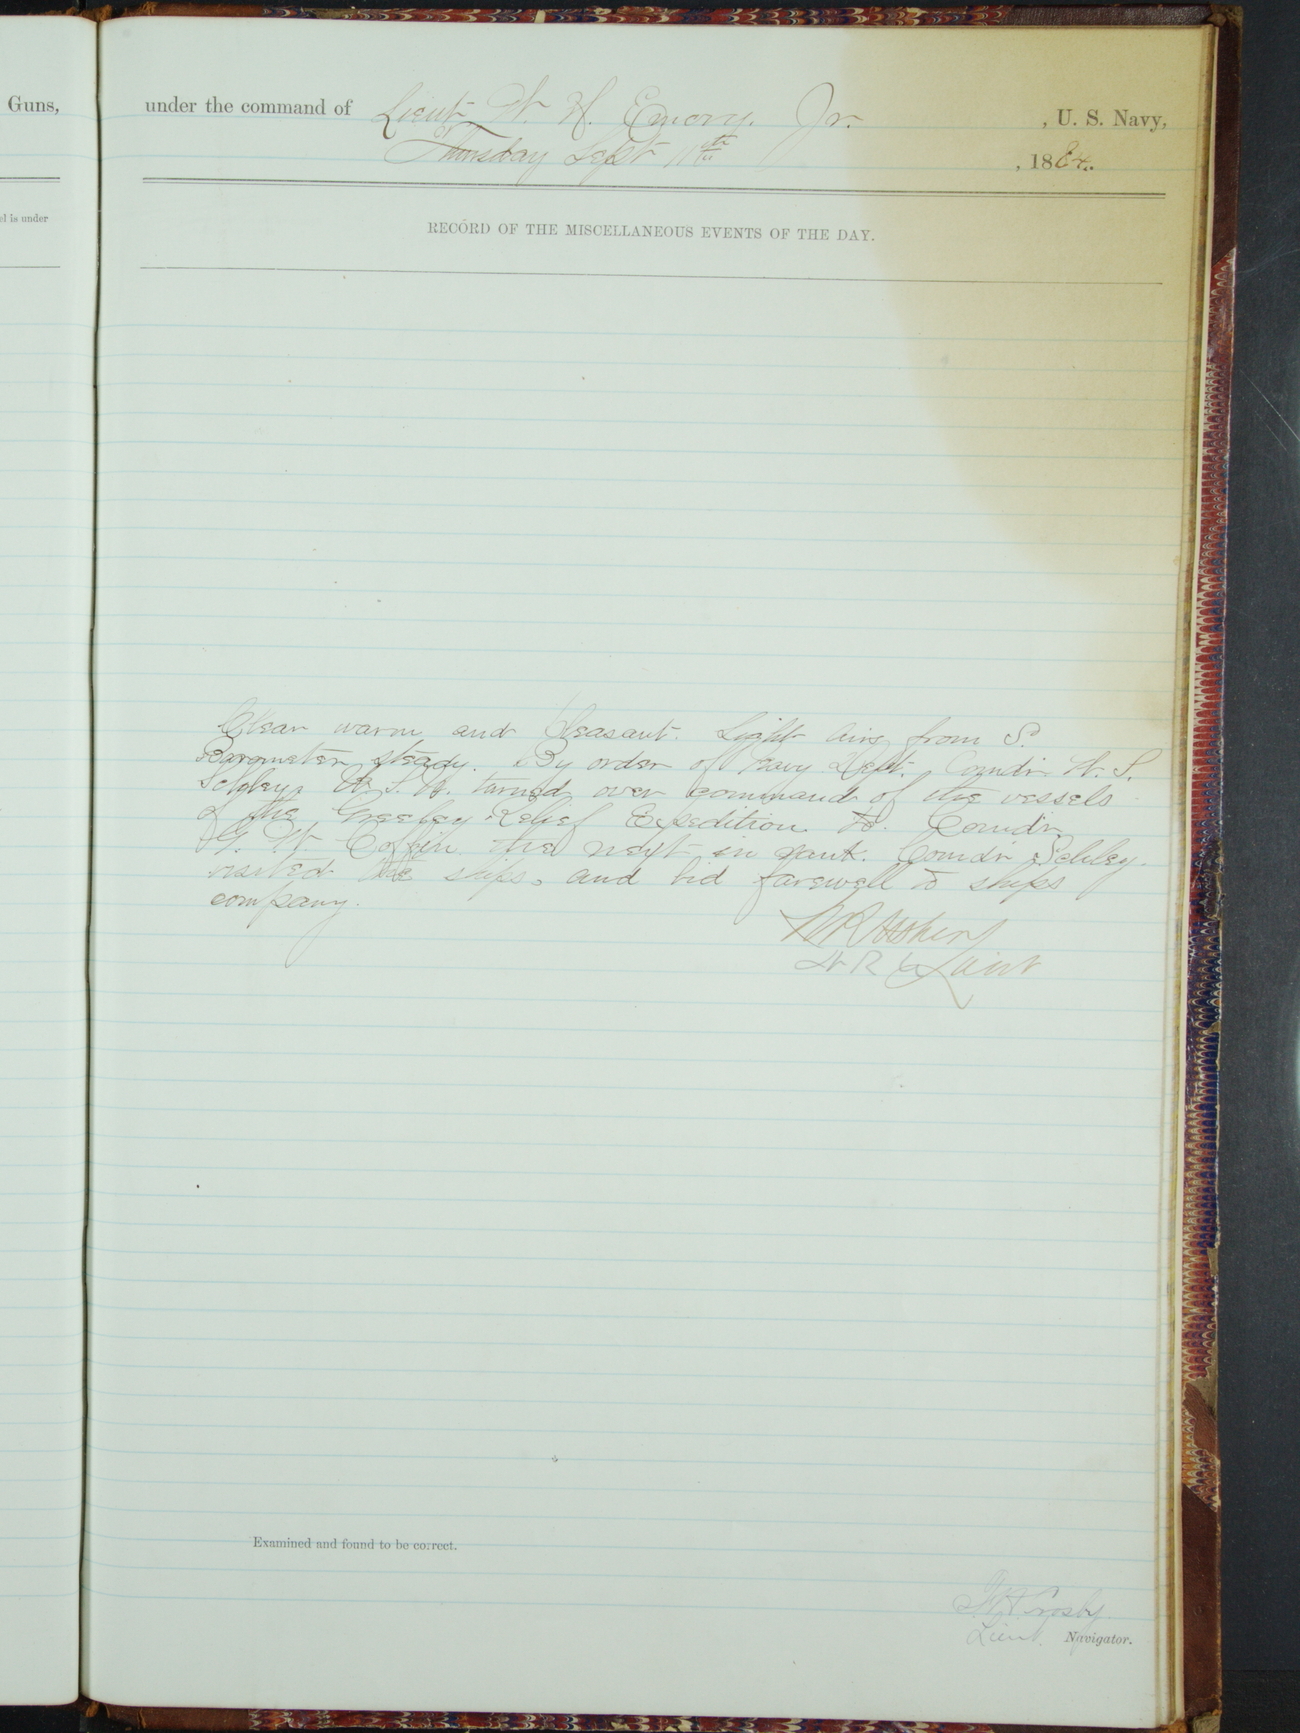 Guns,
el is under
under the command of Lieut W. H. Emory. Jr. , U. S. Navy,
Thursday Sept 11th , 1884.
RECORD OF THE MISCELLANEOUS EVENTS OF THE DAY.
Clear warm and pleasant. Light airs from S.
Barometer steady. By order of Navy Dept. Comdr W. S.
Schley, U. S. N. turned over command of the vessels
of the Greeley Relief Expedition to Comdr
G. W. Coffin the next in rank. Comdr Schley
visited the ships and bid farewell to ships
company.
N R Usher
Lieut
Examined and found to be correct.
Crosby
Lieut. Navigator.